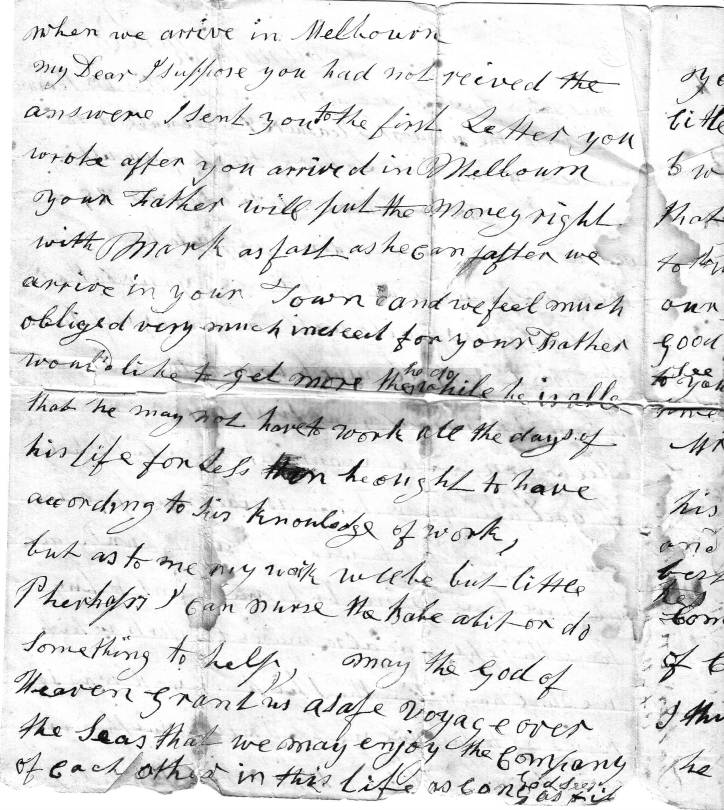 when we arrive in Melbourn
my Dear I suppose you had not reived the
answere I sent you to the first Letter you
wrote after you arrived in Melbourn
your Father will put the Money right
with Mark as fast as he can after we
arrive in your Town and we feel much
obliged very much indeed for your Father
would like to get more than he do while he is able
that he may not have to work all the days of
his life for Less then he ought to have
according to his knowledge of work,
but as to me my work will be but little
Pherhaps I can nurse the babe a bit or do
something to help, may the God of
Heaven grant us a safe voyage over
the Seas that we may enjoy the Company
of each other in this life as long
as it
little
b w
that
to
our
good
to you see
some
Mr
his
and
best
com
of
I thi
he